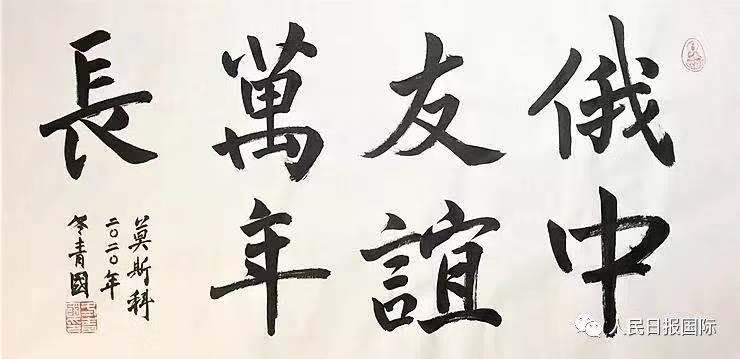 俄中
友誼
萬年
長
莫斯科
二〇二〇年
青國
人民日报国际